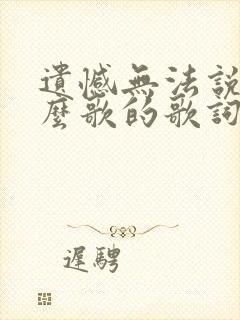 遺憾無法說
麼歌的歌詞
遲騁